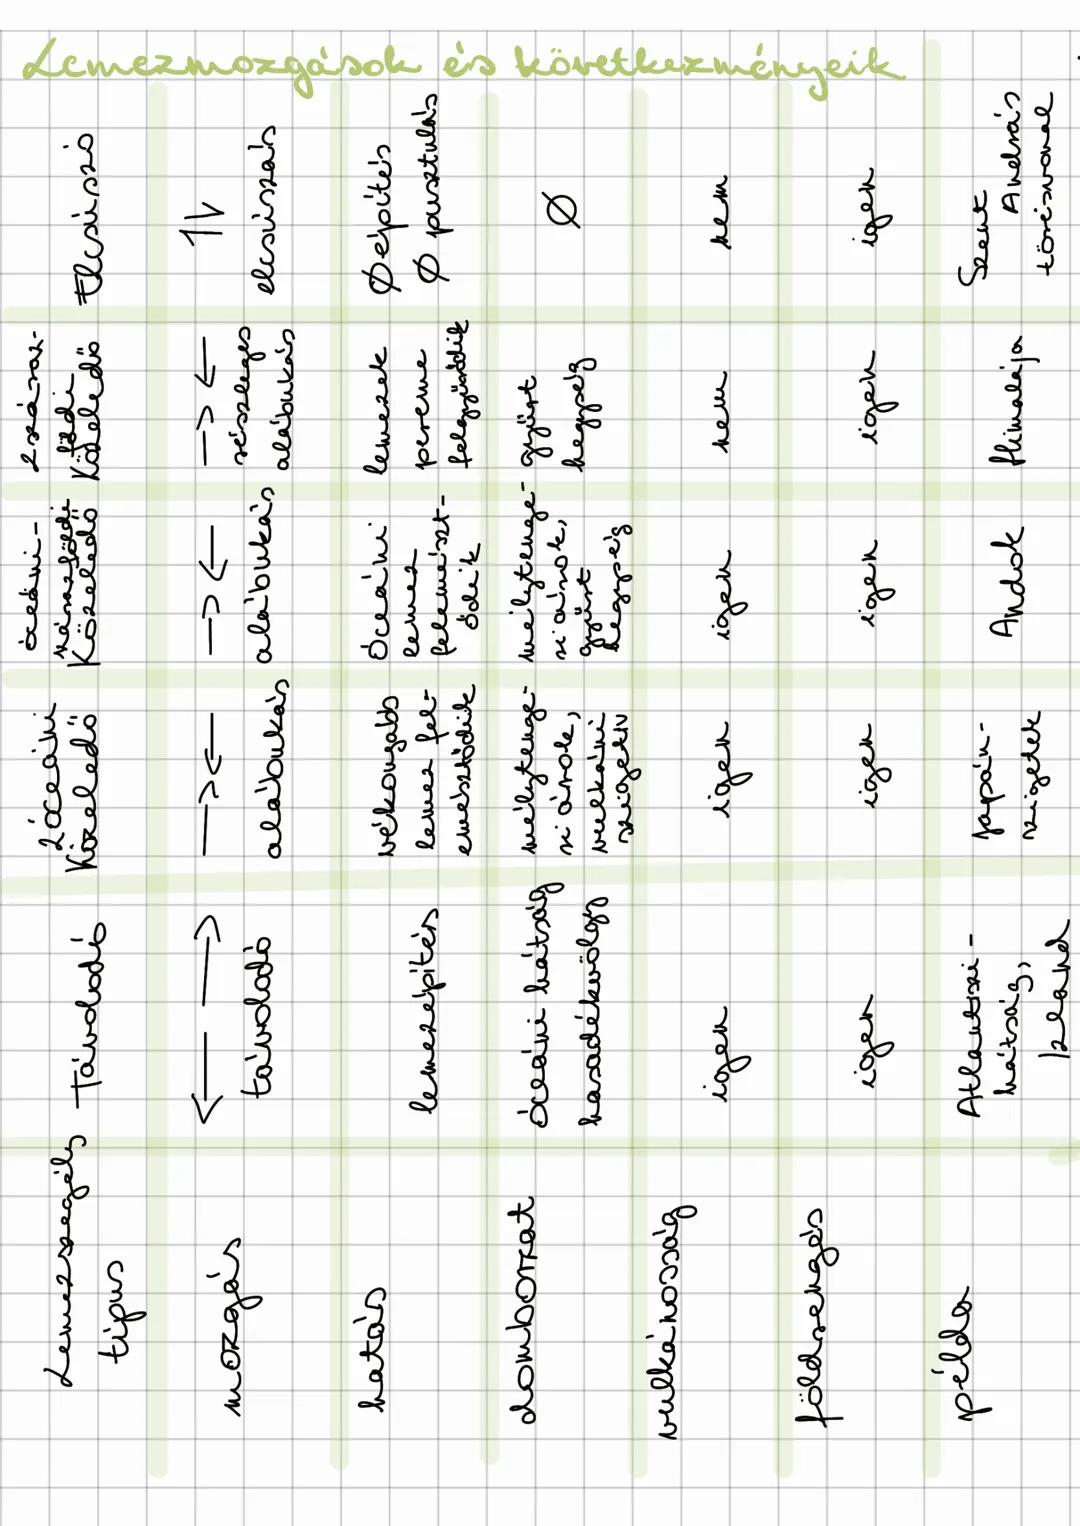 Lemezmozgások és következményeik
Lemezszegély
típus
Távolodó
2 óceáni
Közeledő
óceáni-
szárazföldi
Közeledő
2 száraz-
földi
Közeledő
Elcsúszó
mozgás
← →
távolodó
→←
alábukás
→←
alábukás
→←
részleges
alábukás
↑↓
elcsúszás
hatás
lemezépítés
vékonyabb
lemez fel-
emésztődik
Óceáni
lemez
felemészt-
ődik
lemezek
pereme
felgyűrődik
Ø építés
Ø pusztulás
domborzat
Óceáni hátság
hasadékvölgy
mélytenge-
ri árok,
vulkáni
szigetív
mélytenge-
ri árok,
gyűrt
hegység
gyűrt
hegység
Ø
vulkánosság
igen
igen
igen
nem
nem
földrengés
igen
igen
igen
igen
igen
példa
Atlanti-
hátság,
Izland
Japán-
szigetek
Andok
Himalája
Szent
András
törésvonal